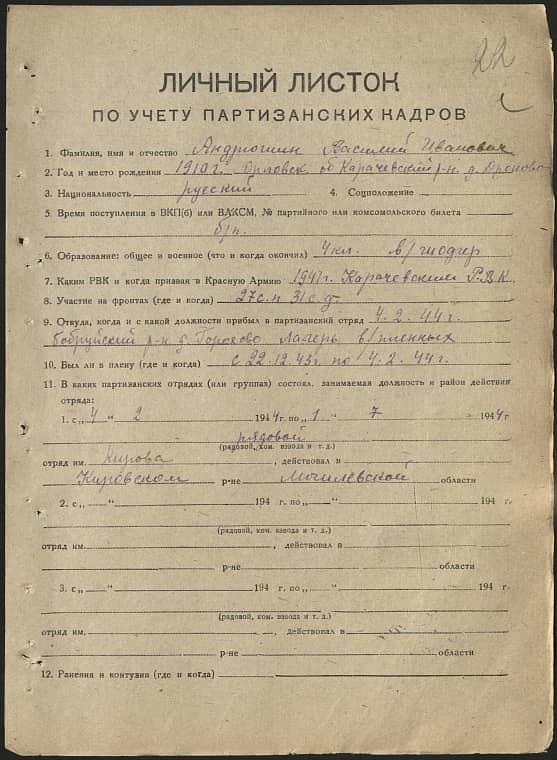 22
ЛИЧНЫЙ ЛИСТОК
ПО УЧЕТУ ПАРТИЗАНСКИХ КАДРОВ
1. Фамилия, имя и отчество Андрюшин Василий Иванович
2. Год и место рождения 1910 г. Орловск. об Карачевский р-н д.
3. Национальность русский 4. Соцположение
5. Время поступления в ВКП(б) или ВЛКСМ, № партийного или комсомольского билета
б/п.
6. Образование: общее и военное (что и когда окончил) 4 кл.
7. Каким РВК и когда призван в Красную Армию 1941 г. Карачевским Р.В.К
8. Участие на фронтах (где и когда) 27 с.п 31 с.д
9. Откуда, когда и с какой должности прибыл в партизанский отряд 4.2.44 г.
Бобруйский р-н д. Горохово Лагерь в/пленных
10. Был ли в плену (где и когда) с 22.12.43 г. по 4.2.44 г.
11. В каких партизанских отрядах (или группах) состоял, занимаемая должность и район действия
отряда:
1. с „4“ 2 1944 г. по „1“ 7 1944 г
рядовой
(рядовой, ком. взвода и т. д.)
отряд им. Кирова, действовал в
Кировском р-не Могилевской области
2. с „ “ 194 г. по „ “ 194 г.
(рядовой, ком. взвода и т. д.)
отряд им. , действовал в
р-не области
3. с „ “ 194 г. по „ “ 194 г.
(рядовой, ком. взвода и т. д.)
отряд им. , действовал в
р-не области
12. Ранения и контузии (где и когда)